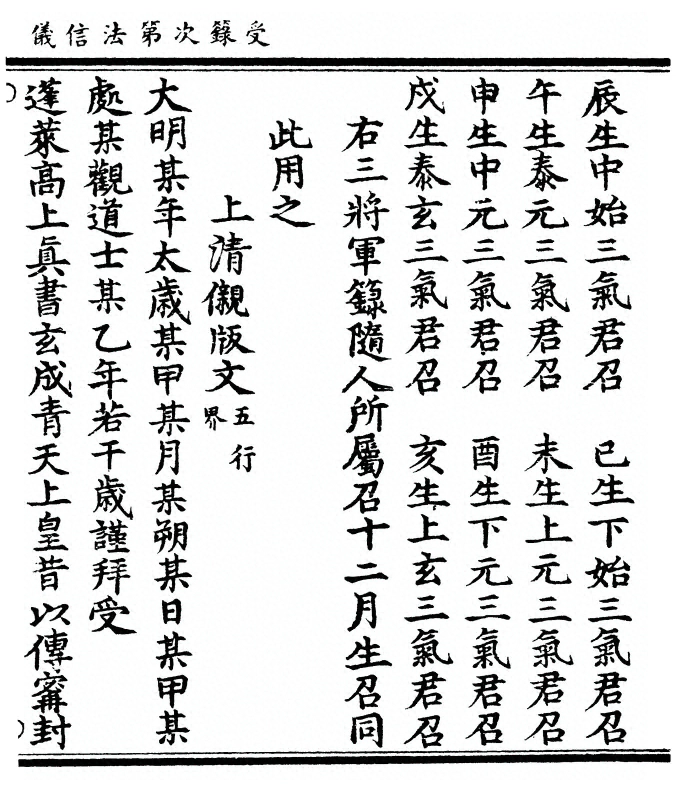 受籙次第法信儀
辰生中始三氣君召　巳生下始三氣君召
午生泰元三氣君召　未生上元三氣君召
申生中元三氣君召　酉生下元三氣君召
戍生泰玄三氣君召　亥生上玄三氣君召
右三將軍籙隨人所屬召十二月生召同
此用之
上清儭版文五行界
大明某年太歲某甲某月某朔某日某甲某
處某觀道士某乙年若干歲謹拜受
蓬萊高上眞書玄成青天上皇昔以傳甯封